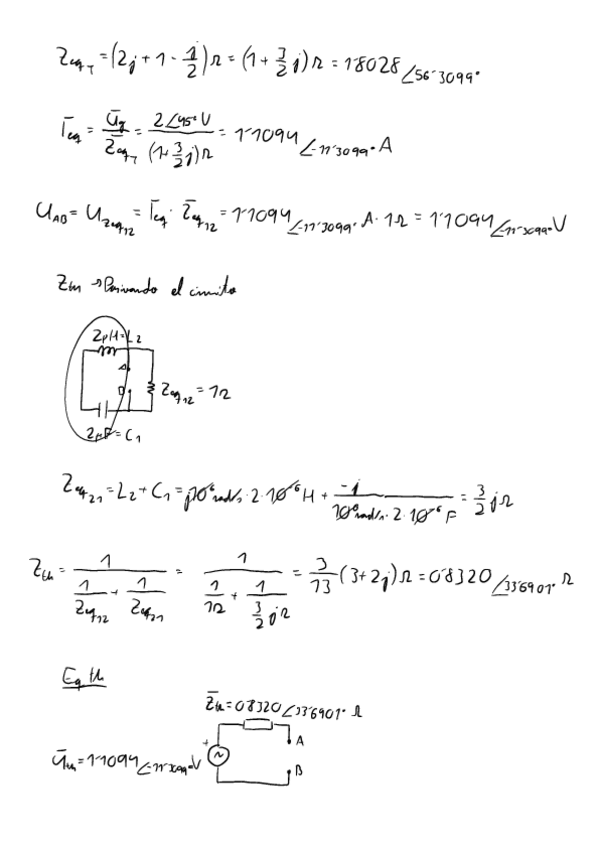 Z_eqT = (2j + 1 - 1/2) Ω = (1 + 3/2 j) Ω = 1'8028 ∠56'3099°
Ī_eq = Ū_g / Z̄_eqT = 2∠45° V / (1 + 3/2 j) Ω = 1'1094 ∠-11'3099° A
U_AB = U_Zeq12 = Ī_eq · Z̄_eq12 = 1'1094 ∠-11'3099° A · 1Ω = 1'1094 ∠-11'3099° V
Z_th → Pasivando el circuito
2μH = L2
A
B
Z_eq12 = 1Ω
2μF = C1
Z_eq21 = L2 + C1 = j10^6 rad/s · 2 · 10^-6 H + -j / 10^6 rad/s · 2 · 10^-6 F = 3/2 j Ω
Z_th = 1 / (1/Z_eq12 + 1/Z_eq21) = 1 / (1/1Ω + 1/(3/2 j Ω)) = 3/13 (3 + 2j) Ω = 0'8320 ∠33'6901° Ω
Eq th
Z̄_th = 0'8320 ∠33'6901° Ω
+
A
Ū_th = 1'1094 ∠-11'3099° V
B